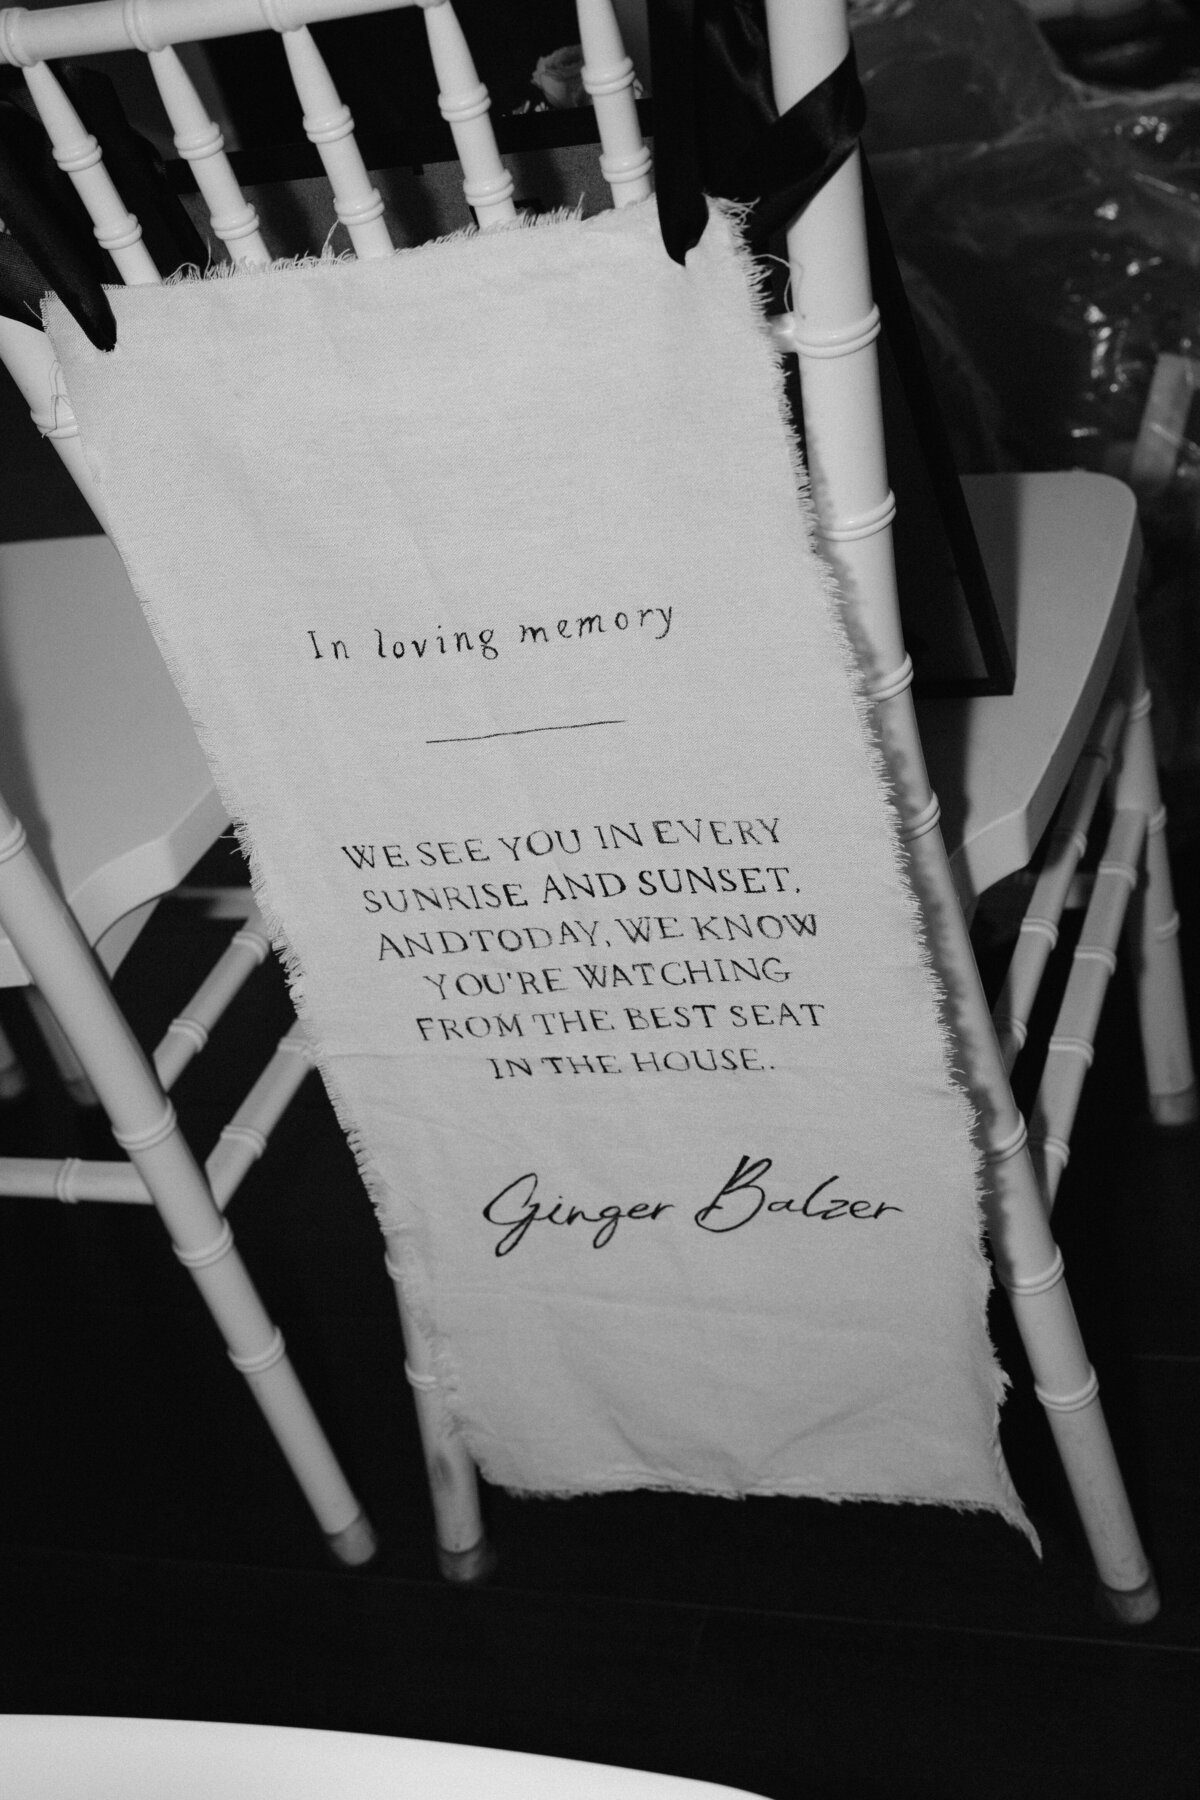 In loving memory
WE SEE YOU IN EVERY
SUNRISE AND SUNSET,
ANDTODAY, WE KNOW
YOU'RE WATCHING
FROM THE BEST SEAT
IN THE HOUSE.
Ginger Balzer